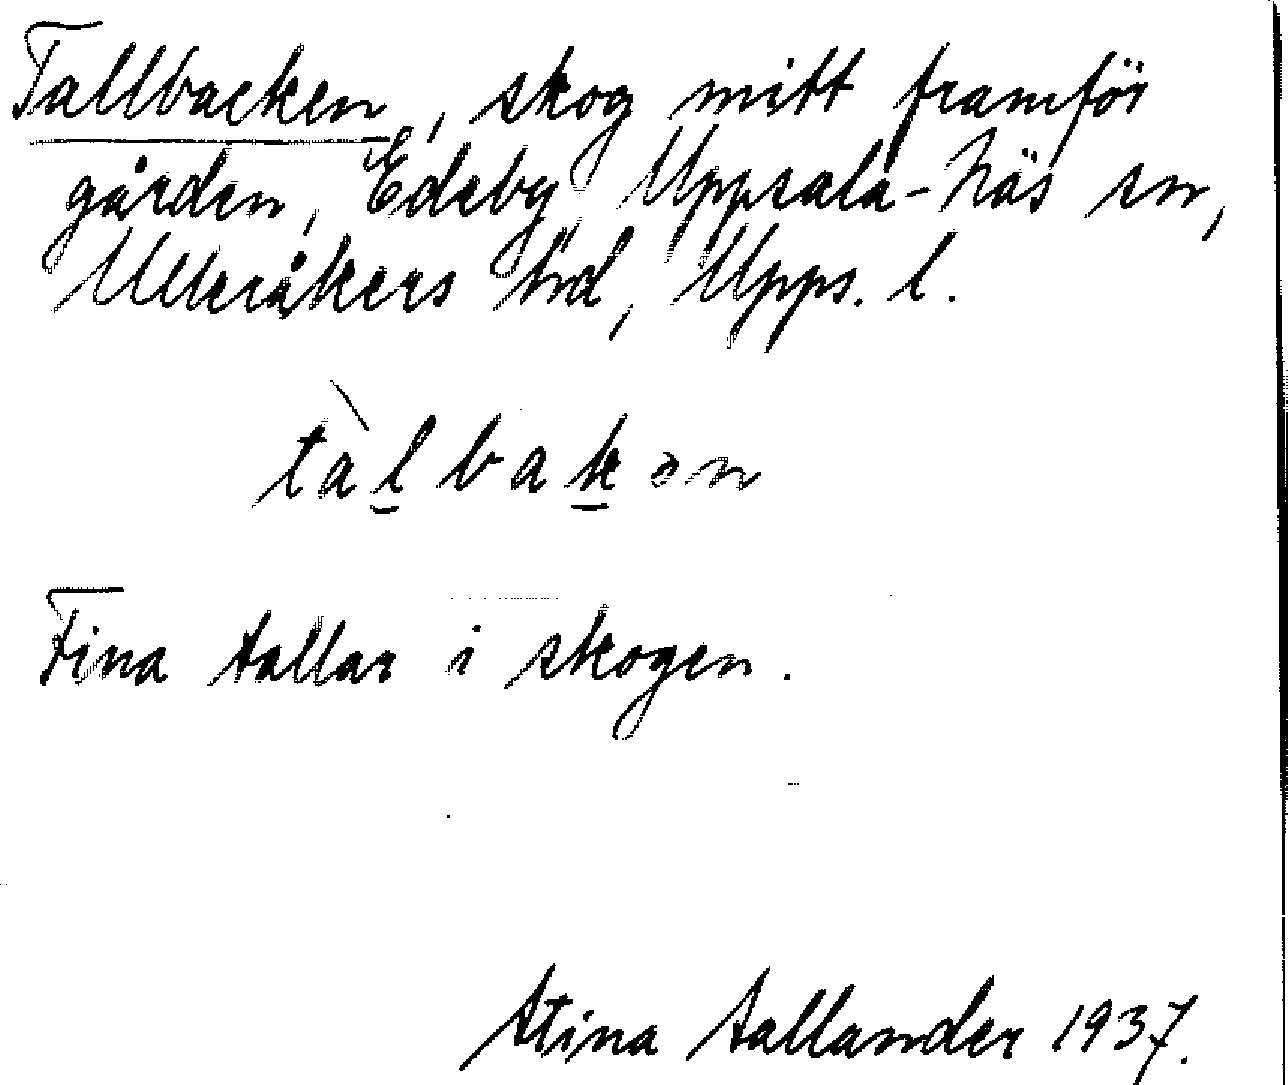 Tallbacken, skog mitt framför
gården, Edeby Uppsala-Näs sn,
Ulleråkers hd, Upps. l.
tàl̲bak̲ən
Fina tallar i skogen.
Stina Tallander 1937.